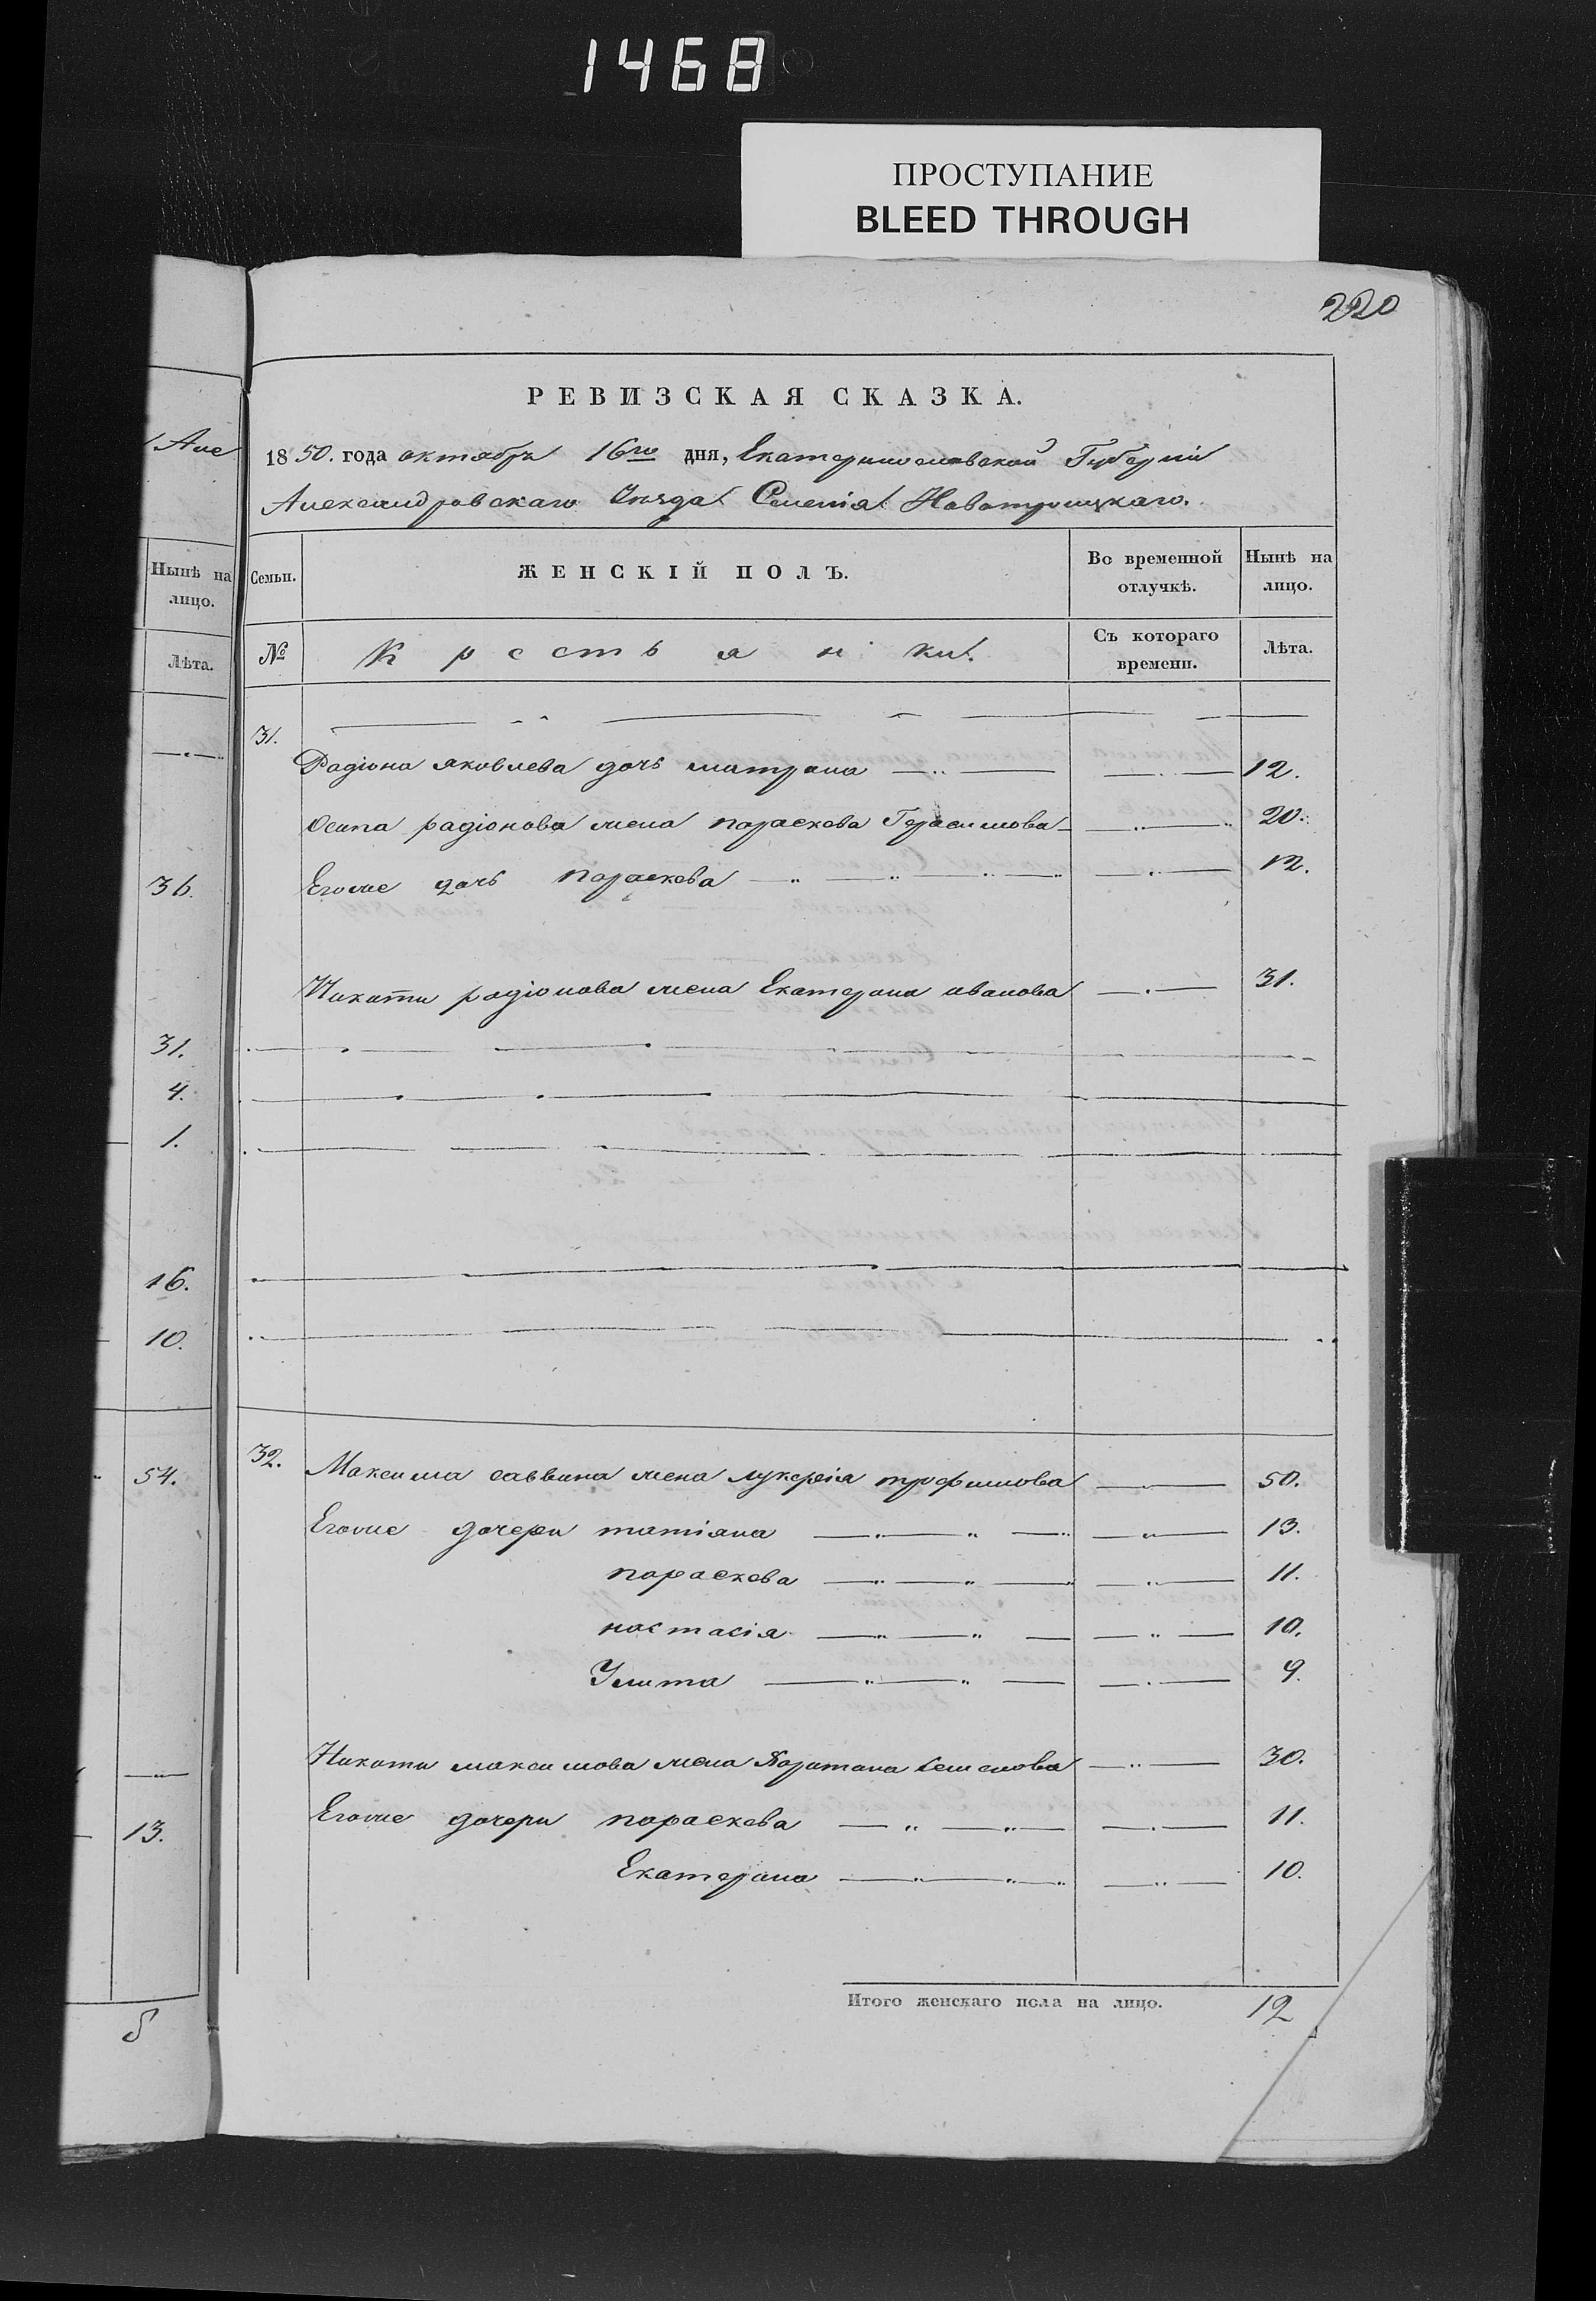 1468
ПРОСТУПАНИЕ
BLEED THROUGH
220
РЕВИЗСКАЯ СКАЗКА.
1850. года октября 16го дня, Екатеринославской Губерніи
Александровскаго Уезда Селенія Новотроицкаго.
Але
Нынѣ на лицо.
Лѣта.
36.
31.
4.
1.
16.
10.
54.
13.
8
Семьи. ЖЕНСКІЙ ПОЛЪ. Во временной отлучкѣ. Нынѣ на лицо.
№ Крестьянки. Съ котораго времени. Лѣта.
31.
Радіона яковлева дочь матрона 12.
Осипа радіонова жена параскева Герасимова 20.
Егоже дочь параскева 12.
Никиты радіонова жена Екатерина иванова 31.
32. Максима саввина жена лукерія трофимова 50.
Егоже дочери татіяна 13.
параскева 11.
настасія 10.
Улита 9.
Никиты максимова жена семенова 30.
Егоже дочери параскева 11.
Екатерина 10.
Итого женскаго пола на лицо. 12